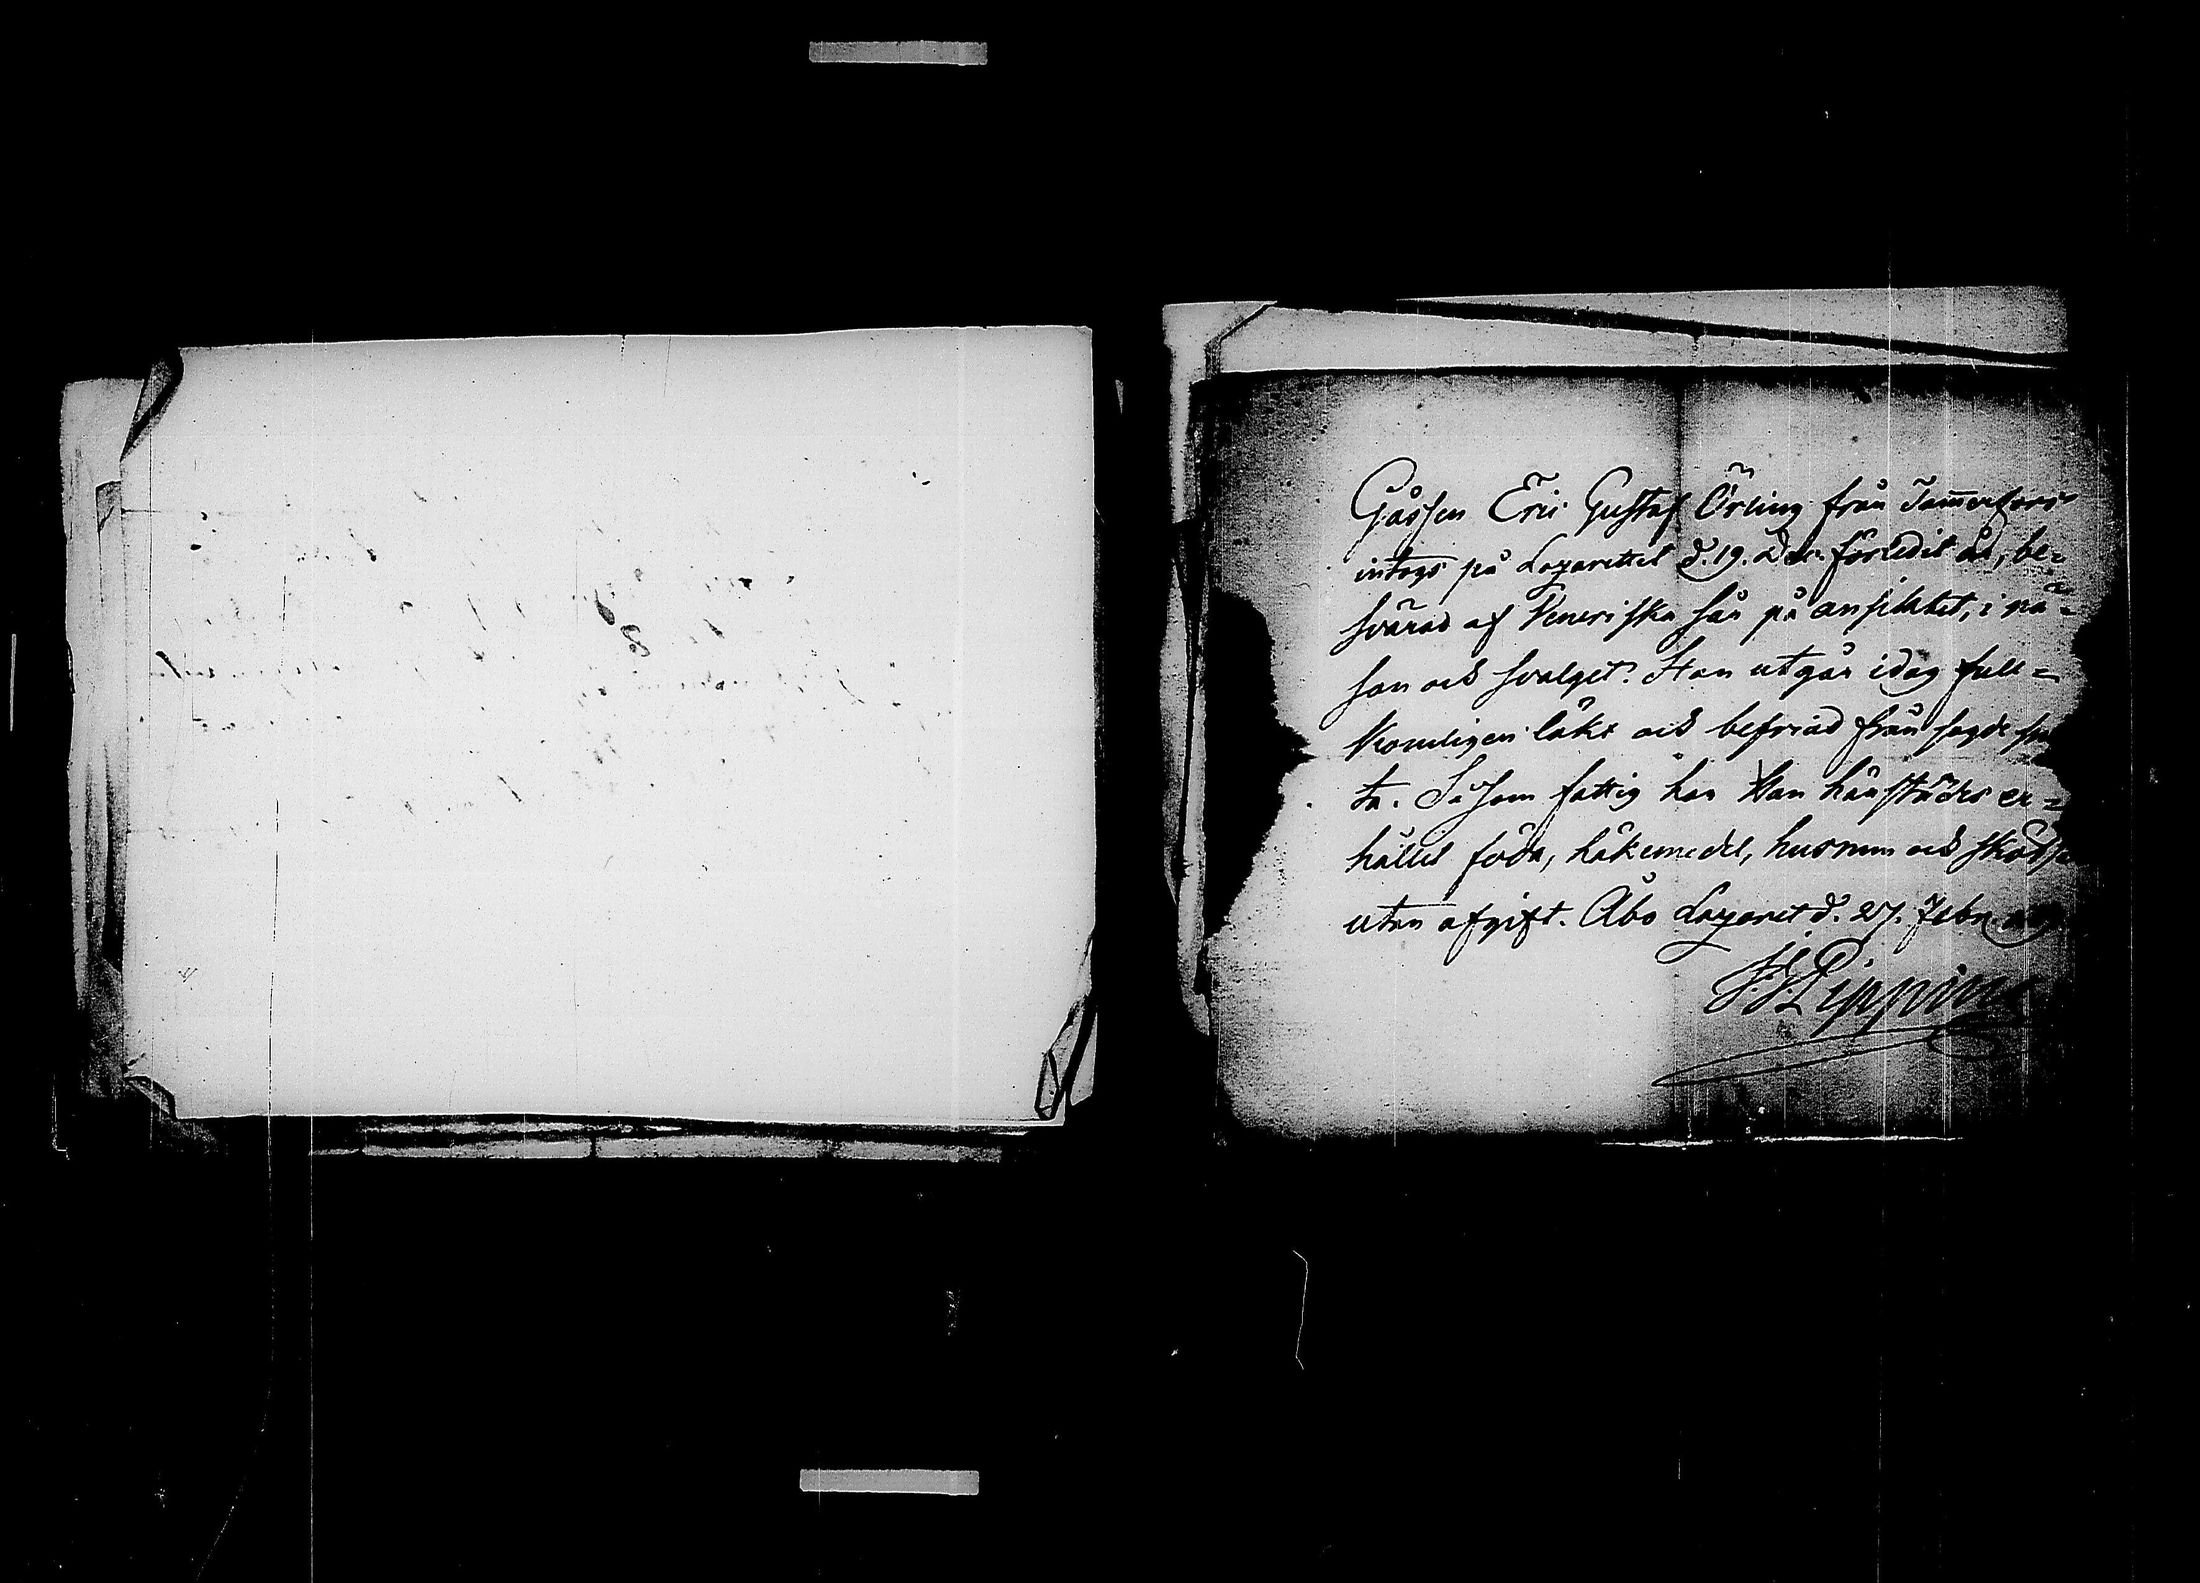 Gåssen Eric Gustaf Örling från Tammerfors
intogs på Lazarettet d. 19. Dec. förledit år, be=
svärad af Veneriska sår på ansiktet, i nä=
san och svalget. Han utgår idag full=
komligen läkt och befriad från sagde
ta. Såsom fattig har Han härstädes er=
hållit föda, läkemedel, husrum och skötse
utan afgift. Åbo Lazaret d. 27. Febr.
J. J. Pippin